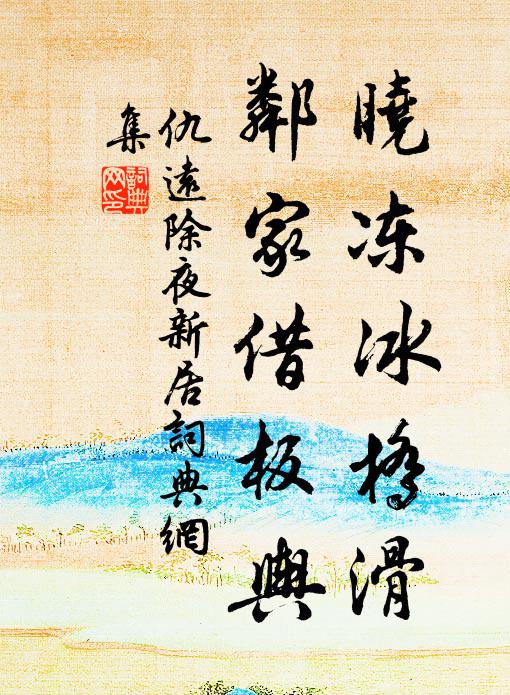 曉冻冰橋滑
鄰家借板輿
仇遠除夜新居詞典網
集
詞典
网印